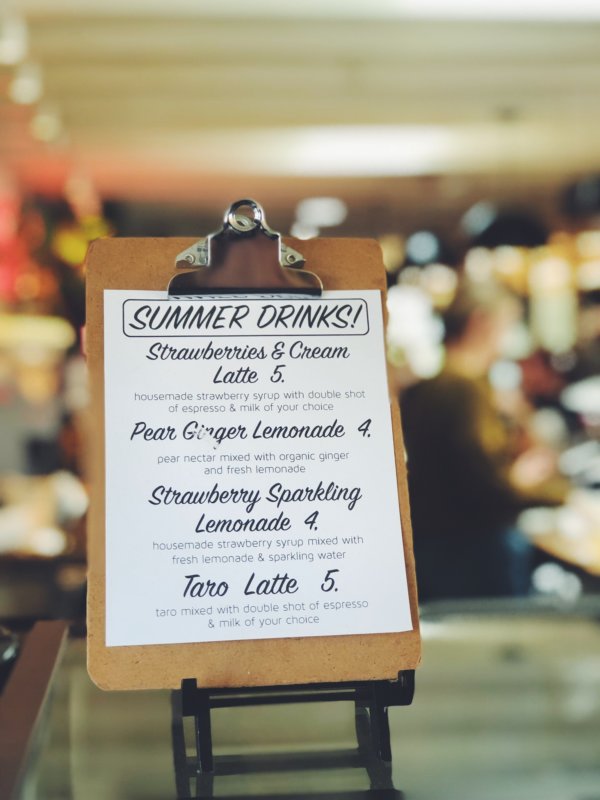 SUMMER DRINKS!
Strawberries & Cream
Latte 5.
housemade strawberry syrup with double shot
of espresso & milk of your choice
Pear Ginger Lemonade 4.
pear nectar mixed with organic ginger
and fresh lemonade
Strawberry Sparkling
Lemonade 4.
housemade strawberry syrup mixed with
fresh lemonade & sparkling water
Taro Latte 5.
taro mixed with double shot of espresso
& milk of your choice